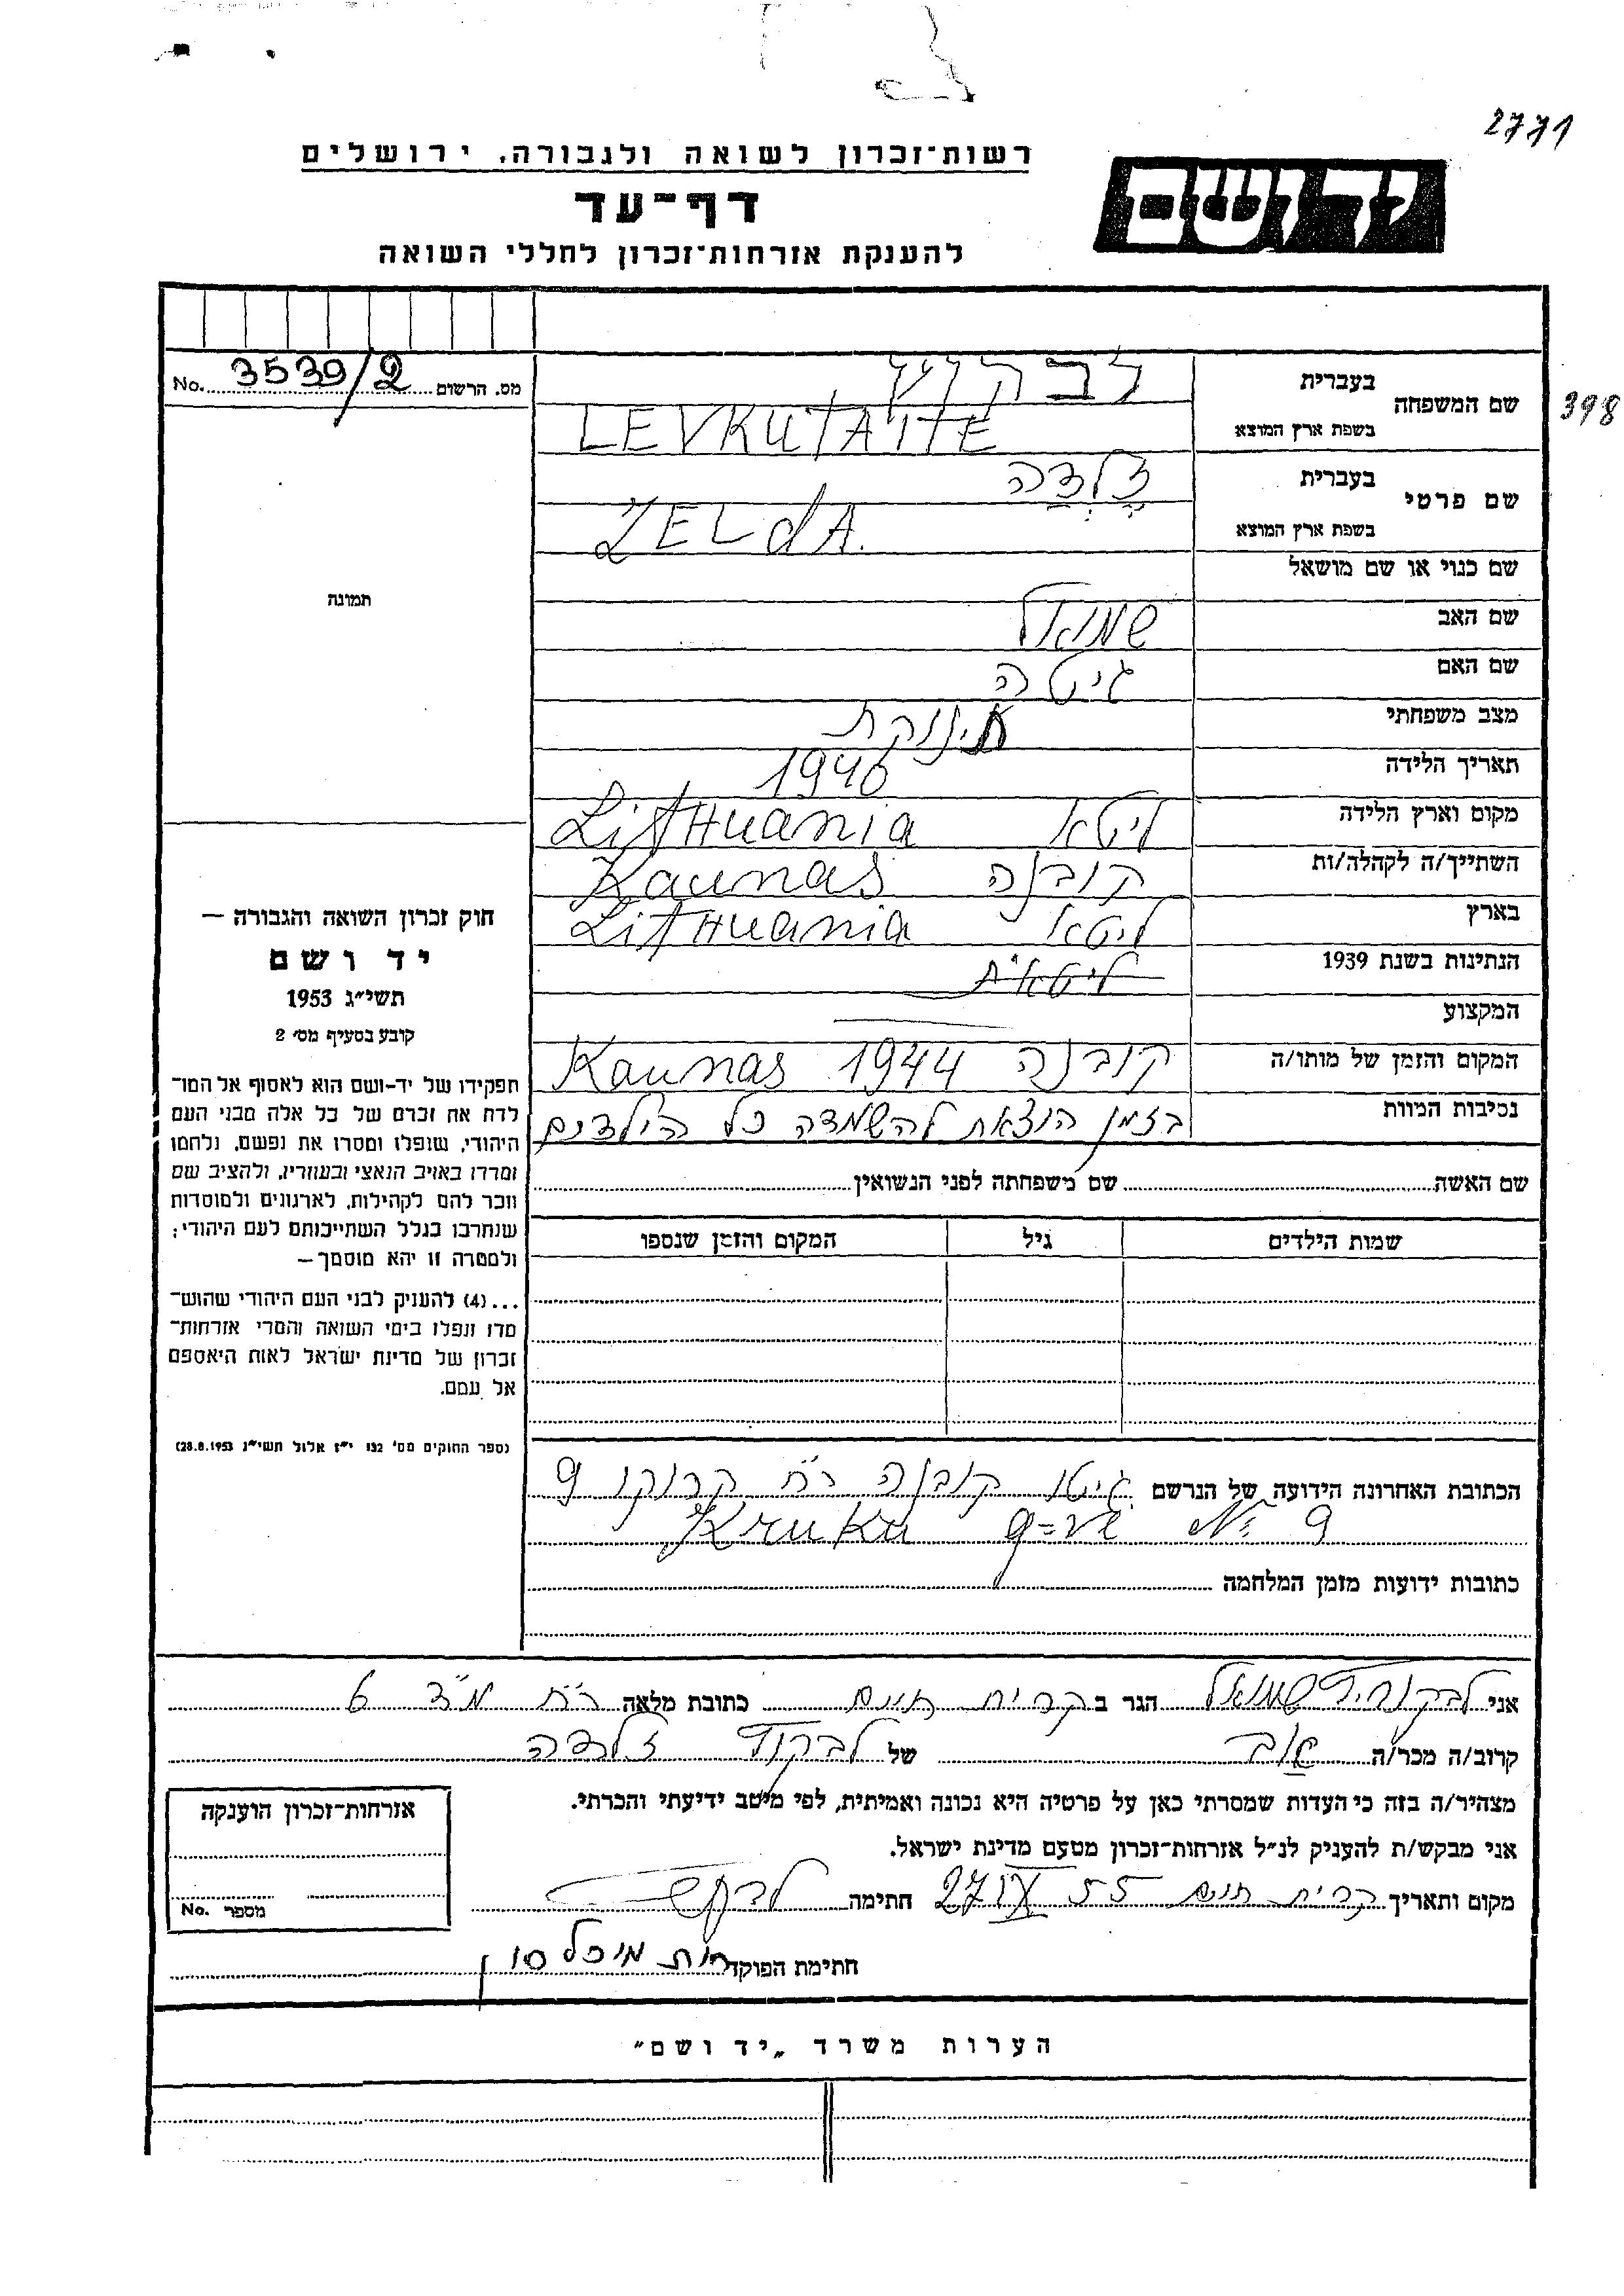 2771
רשות־זכרון לשואה ולגבורה, ירושלים
דף־עד
להענקת אזרחות־זכרון לחללי השואה
יד ושם
מס. הרשום 3539/2 No.
398
שם המשפחה
בעברית
בשפת ארץ המוצא LEVKUTAITE
שם פרטי
בעברית זֶלְדַה
בשפת ארץ המוצא ZELdA.
שם כנוי או שם מושאל
שם האב שמואל
שם האם גיטה
מצב משפחתי תינוקת
תאריך הלידה 1940
מקום וארץ הלידה ליטא Lithuania
השתייך/ה לקהלה/ות קובנה Kaunas
בארץ ליטא Lithuania
הנתינות בשנת 1939 ליטאית
המקצוע
המקום והזמן של מותו/ה קובנה 1944 Kaunas
נסיבות המוות בזמן הוצאת להשמדה כל הילדים
שם האשה שם משפחתה לפני הנשואין
שמות הילדים גיל המקום והזמן שנספו
תמונה
חוק זכרון השואה והגבורה —
יד ושם
תשי״ג 1953
קובע בסעיף מס׳ 2
תפקידו של יד-ושם הוא לאסוף אל המו־
לדת את זכרם של כל אלה מבני העם
היהודי, שנפלו ומסרו את נפשם, נלחמו
ומרדו באויב הנאצי ובעוזריו, ולהציב שם
וזכר להם לקהילות, לארגונים ולמוסדות
שנחרבו בגלל השתייכותם לעם היהודי;
ולמטרה זו יהא מוסמך—
...(4) להעניק לבני העם היהודי שהוש־
מדו ונפלו בימי השואה והמרי אזרחות־
זכרון של מדינת ישראל לאות היאספם
אל עמם.
(ספר החוקים מס׳ 132 י״ז אלול תשי״ג 28.8.1953)
הכתובת האחרונה הידועה של הנרשם גיטו קובנה רח׳ קרוקו 9
Kruku g=ve № 9
כתובות ידועות מזמן המלחמה
אני לבקוביץ שמואל הגר ב קרית חיים כתובת מלאה רח׳ מ״ד 6
קרוב/ה מכר/ה אב של זלדה
מצהיר/ה בזה כי העדות שמסרתי כאן על פרטיה היא נכונה ואמיתית, לפי מיטב ידיעתי והכרתי.
אני מבקש/ת להעניק לנ״ל אזרחות־זכרון מטעם מדינת ישראל.
מקום ותאריך קרית חיים 27 IX 55 חתימה
חתימת הפוקד רות מיכלסון
אזרחות־זכרון הוענקה
מספר No.
הערות משרד „יד ושם״